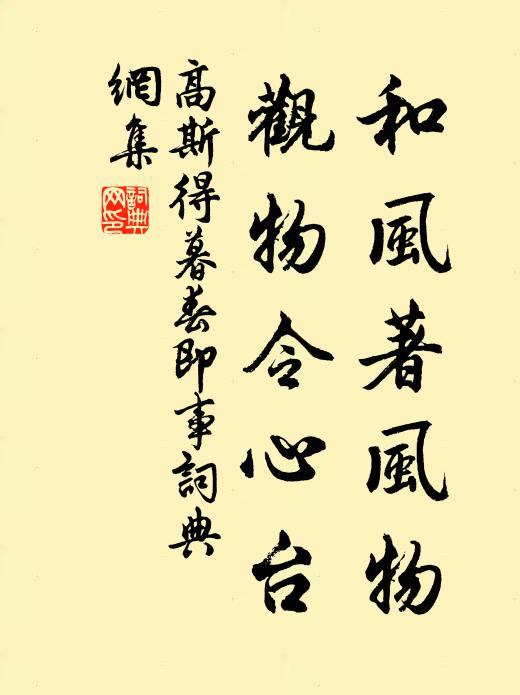 和風著風物
觀物令心台
高斯得暮春即事詞典
網集
詞典网印